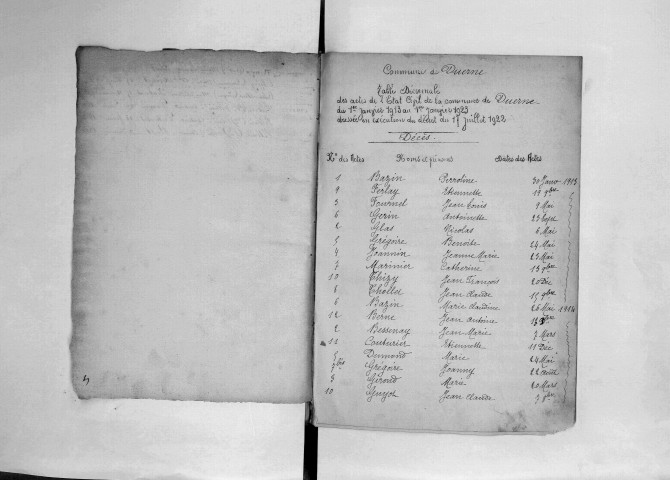 Commune de Duerne
Table Décennale
des actes de l'Etat Civil de la commune de Duerne
du 1er janvier 1913 au 1er janvier 1923
dressée en exécution du décret du 17 juillet 1922
Décès
Nos des Actes Noms et prénoms Dates des Actes
1 Bazin Perroline 30 Janv 1913
9 Ferlay Etiennette 19 9bre
3 Fournel Jean Louis 9 Mai
6 Gerin Antoinette 23 Sept
2 Glas Nicolas 6 Mai
5 Grégoire Benoite 24 Mai
4 Joannin Jeanne Marie 23 Mai
7 Marinier Catherine 13 9bre
10 Thizy Jean François 20 Déc
8 Thollet Jean claude 15 9bre
6 Bazin Marie claudine 26 Mai 1914
12 Berne Jean Antoine
2 Bessenay Jean Marie 7 Mars
11 Couturier Etiennette 11 Déc
5 Dumond Marie 24 Mai
7bis Grégoire Joanny 22 Août
3 Giroud Marie 20 Mars
10 Guyot Jean claude